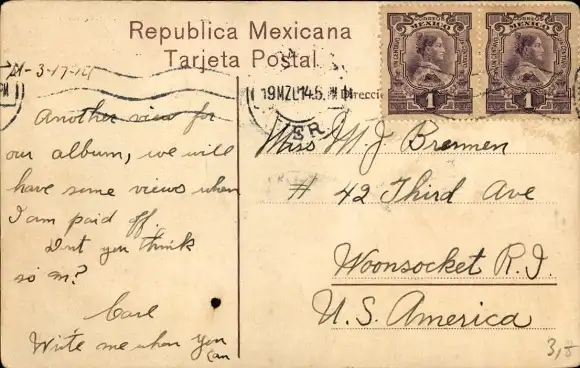 Republica Mexicana
Tarjeta Postal
CORREOS
MEXICO
1
CORREOS
MEXICO
1
3-17-14
19 MZO 14
Another view for
our album, we will
have some views when
I am paid off
Dnt you think
so m?
Carl
Write me when you
can
Miss M J Brennen
# 42 Third Ave
Woonsocket R.I.
U.S. America
3,5